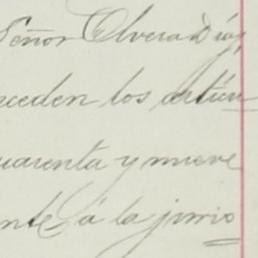 Señor Olvera Díaz,
ceden los artícu
uarenta y nueve
nte á la juris